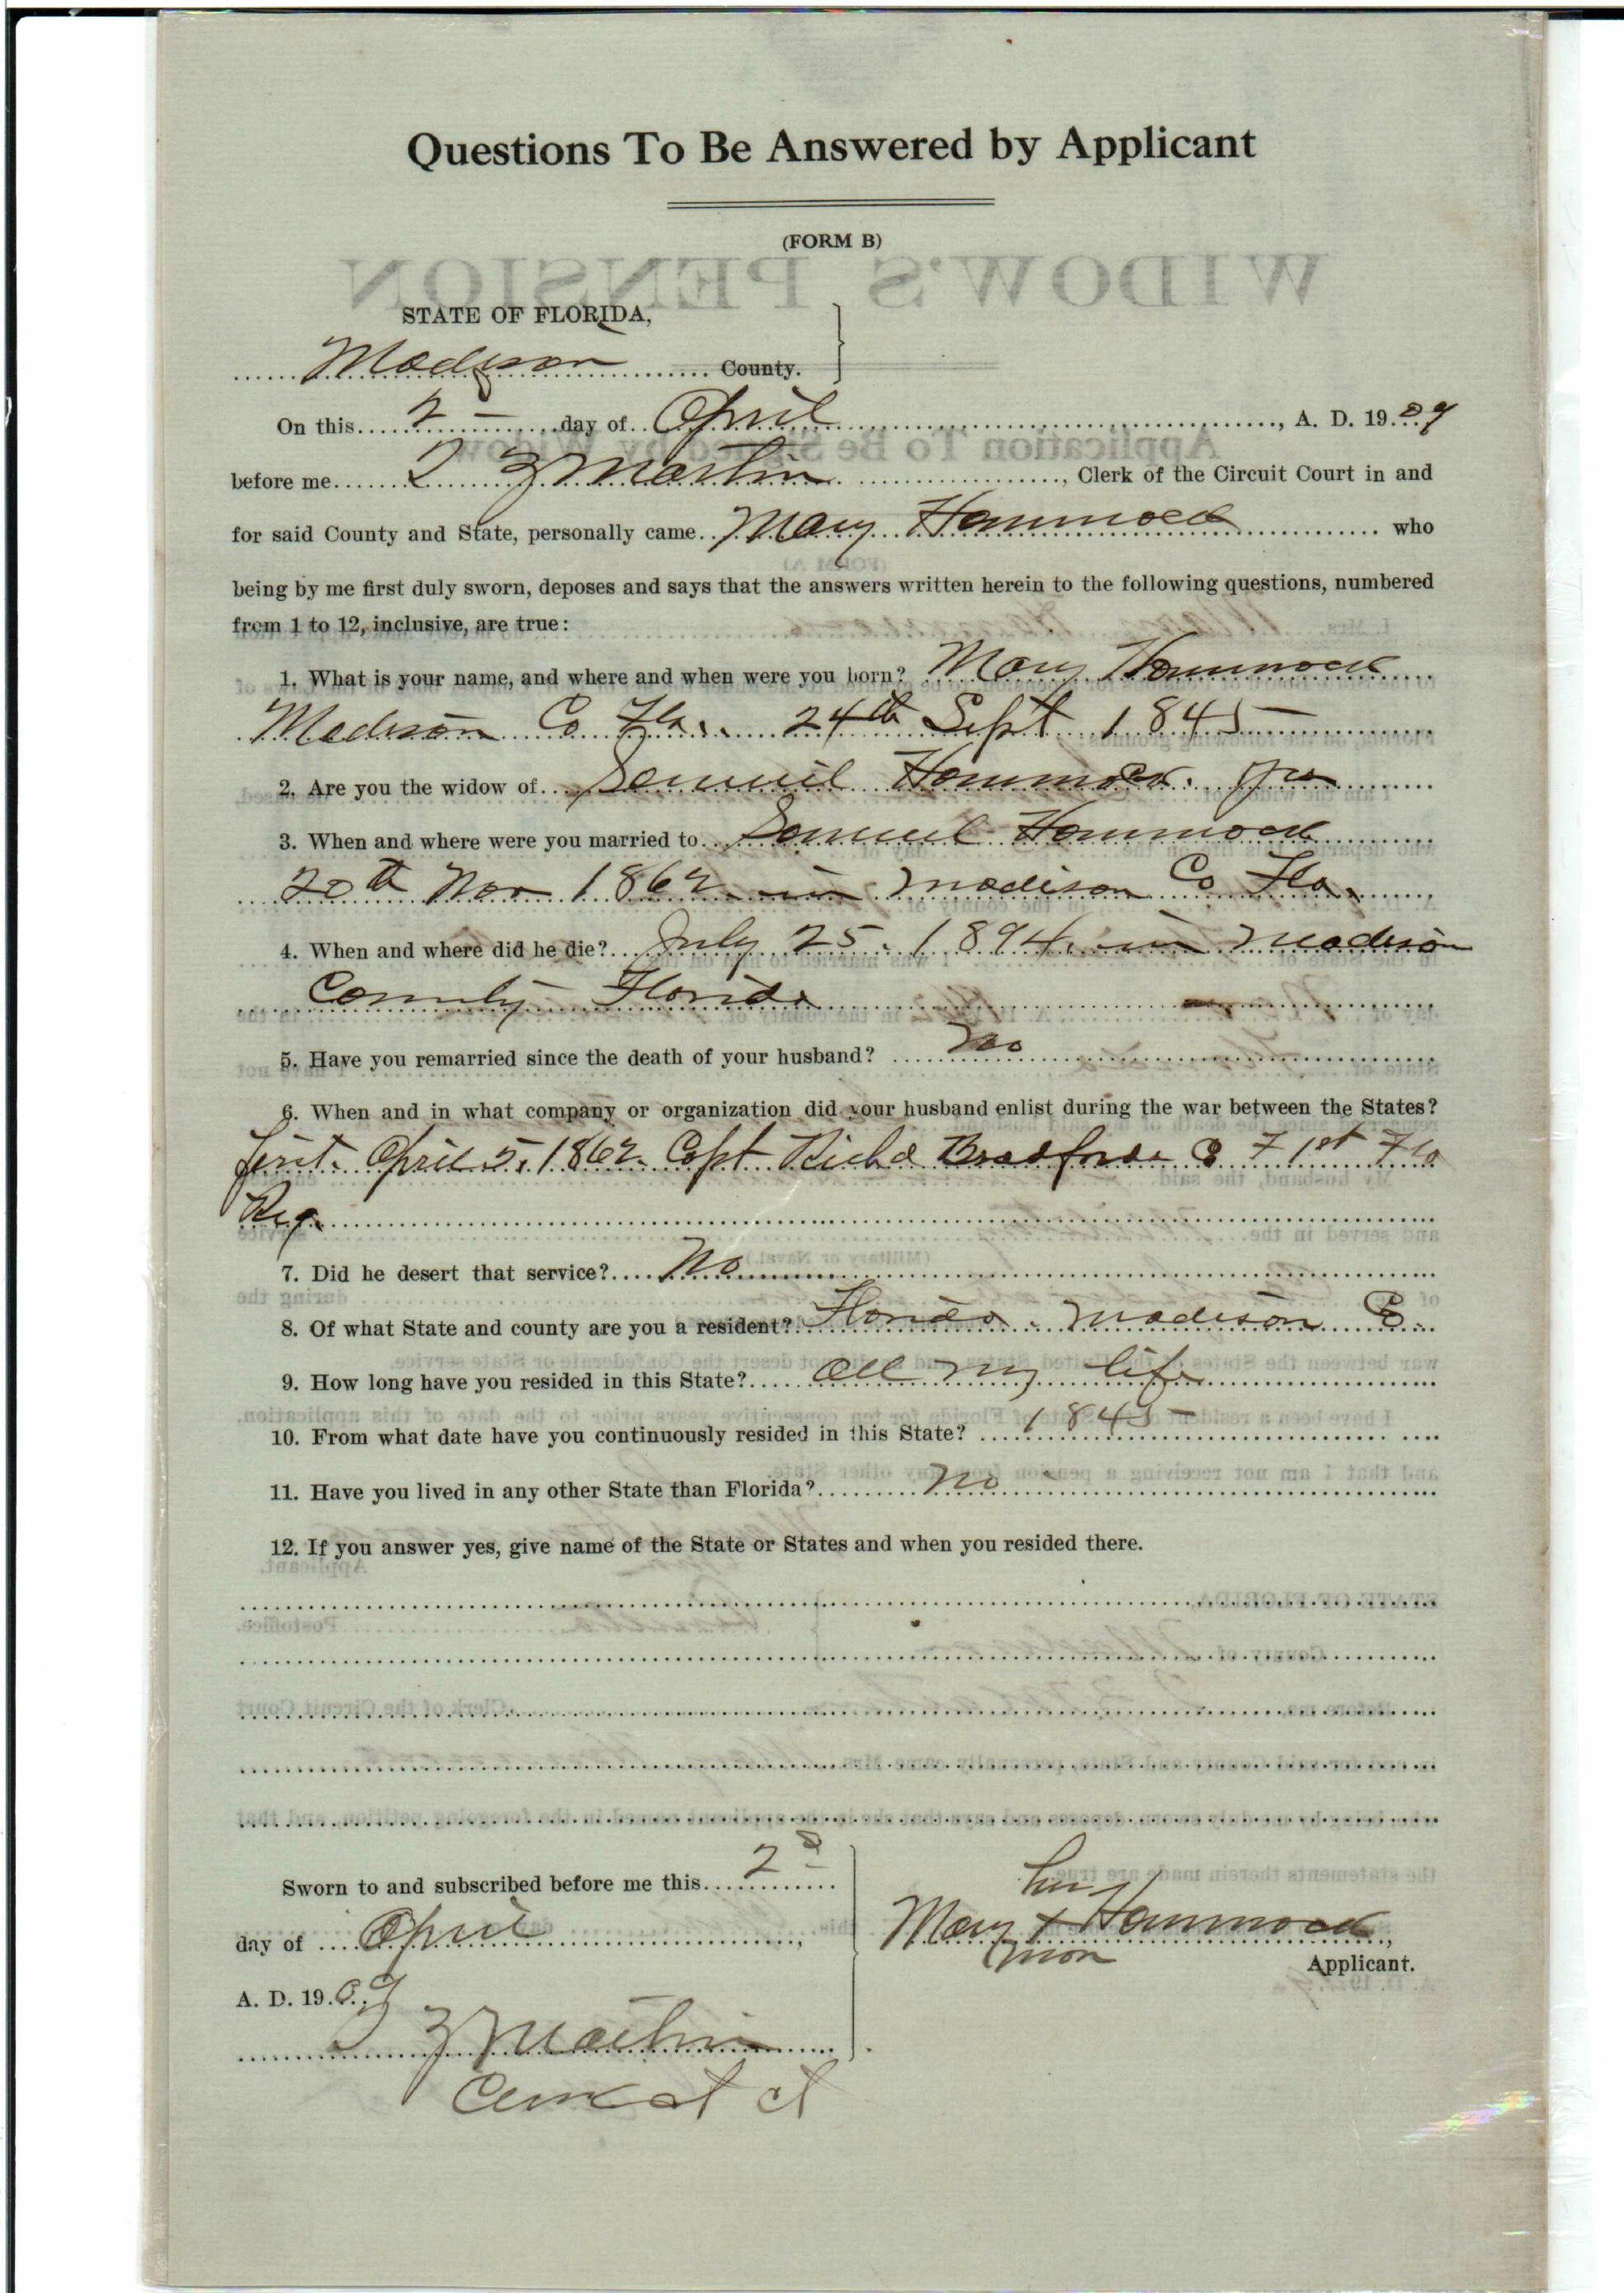 Questions To Be Answered by Applicant
(FORM B)
WIDOW'S PENSION
STATE OF FLORIDA,
Madison County.
On this 2 day of April, A. D. 1909
before me Martin, Clerk of the Circuit Court in and
for said County and State, personally came Mary Hammock who
being by me first duly sworn, deposes and says that the answers written herein to the following questions, numbered
from 1 to 12, inclusive, are true:
1. What is your name, and where and when were you born? Mary Hammock
Madison Co Fla. 24th Sept 1845
2. Are you the widow of Samuel Hammock. yes
3. When and where were you married to Samuel Hammock
20th Nov 1862 in Madison Co Fla.
4. When and where did he die? July 25. 1894. in Madison
County Florida
5. Have you remarried since the death of your husband? No
6. When and in what company or organization did your husband enlist during the war between the States?
first. April 5, 1862 Capt Richd Bradford Co F 1st Fla
Reg.
7. Did he desert that service? No
8. Of what State and county are you a resident? Florida. Madison Co.
9. How long have you resided in this State? All my life
10. From what date have you continuously resided in this State? 1845
11. Have you lived in any other State than Florida? No
12. If you answer yes, give name of the State or States and when you resided there.
Sworn to and subscribed before me this 2d
day of April,
A. D. 1909
Martin
Clerk Ct Ct
her
Mary X Hammock,
mark
Applicant.